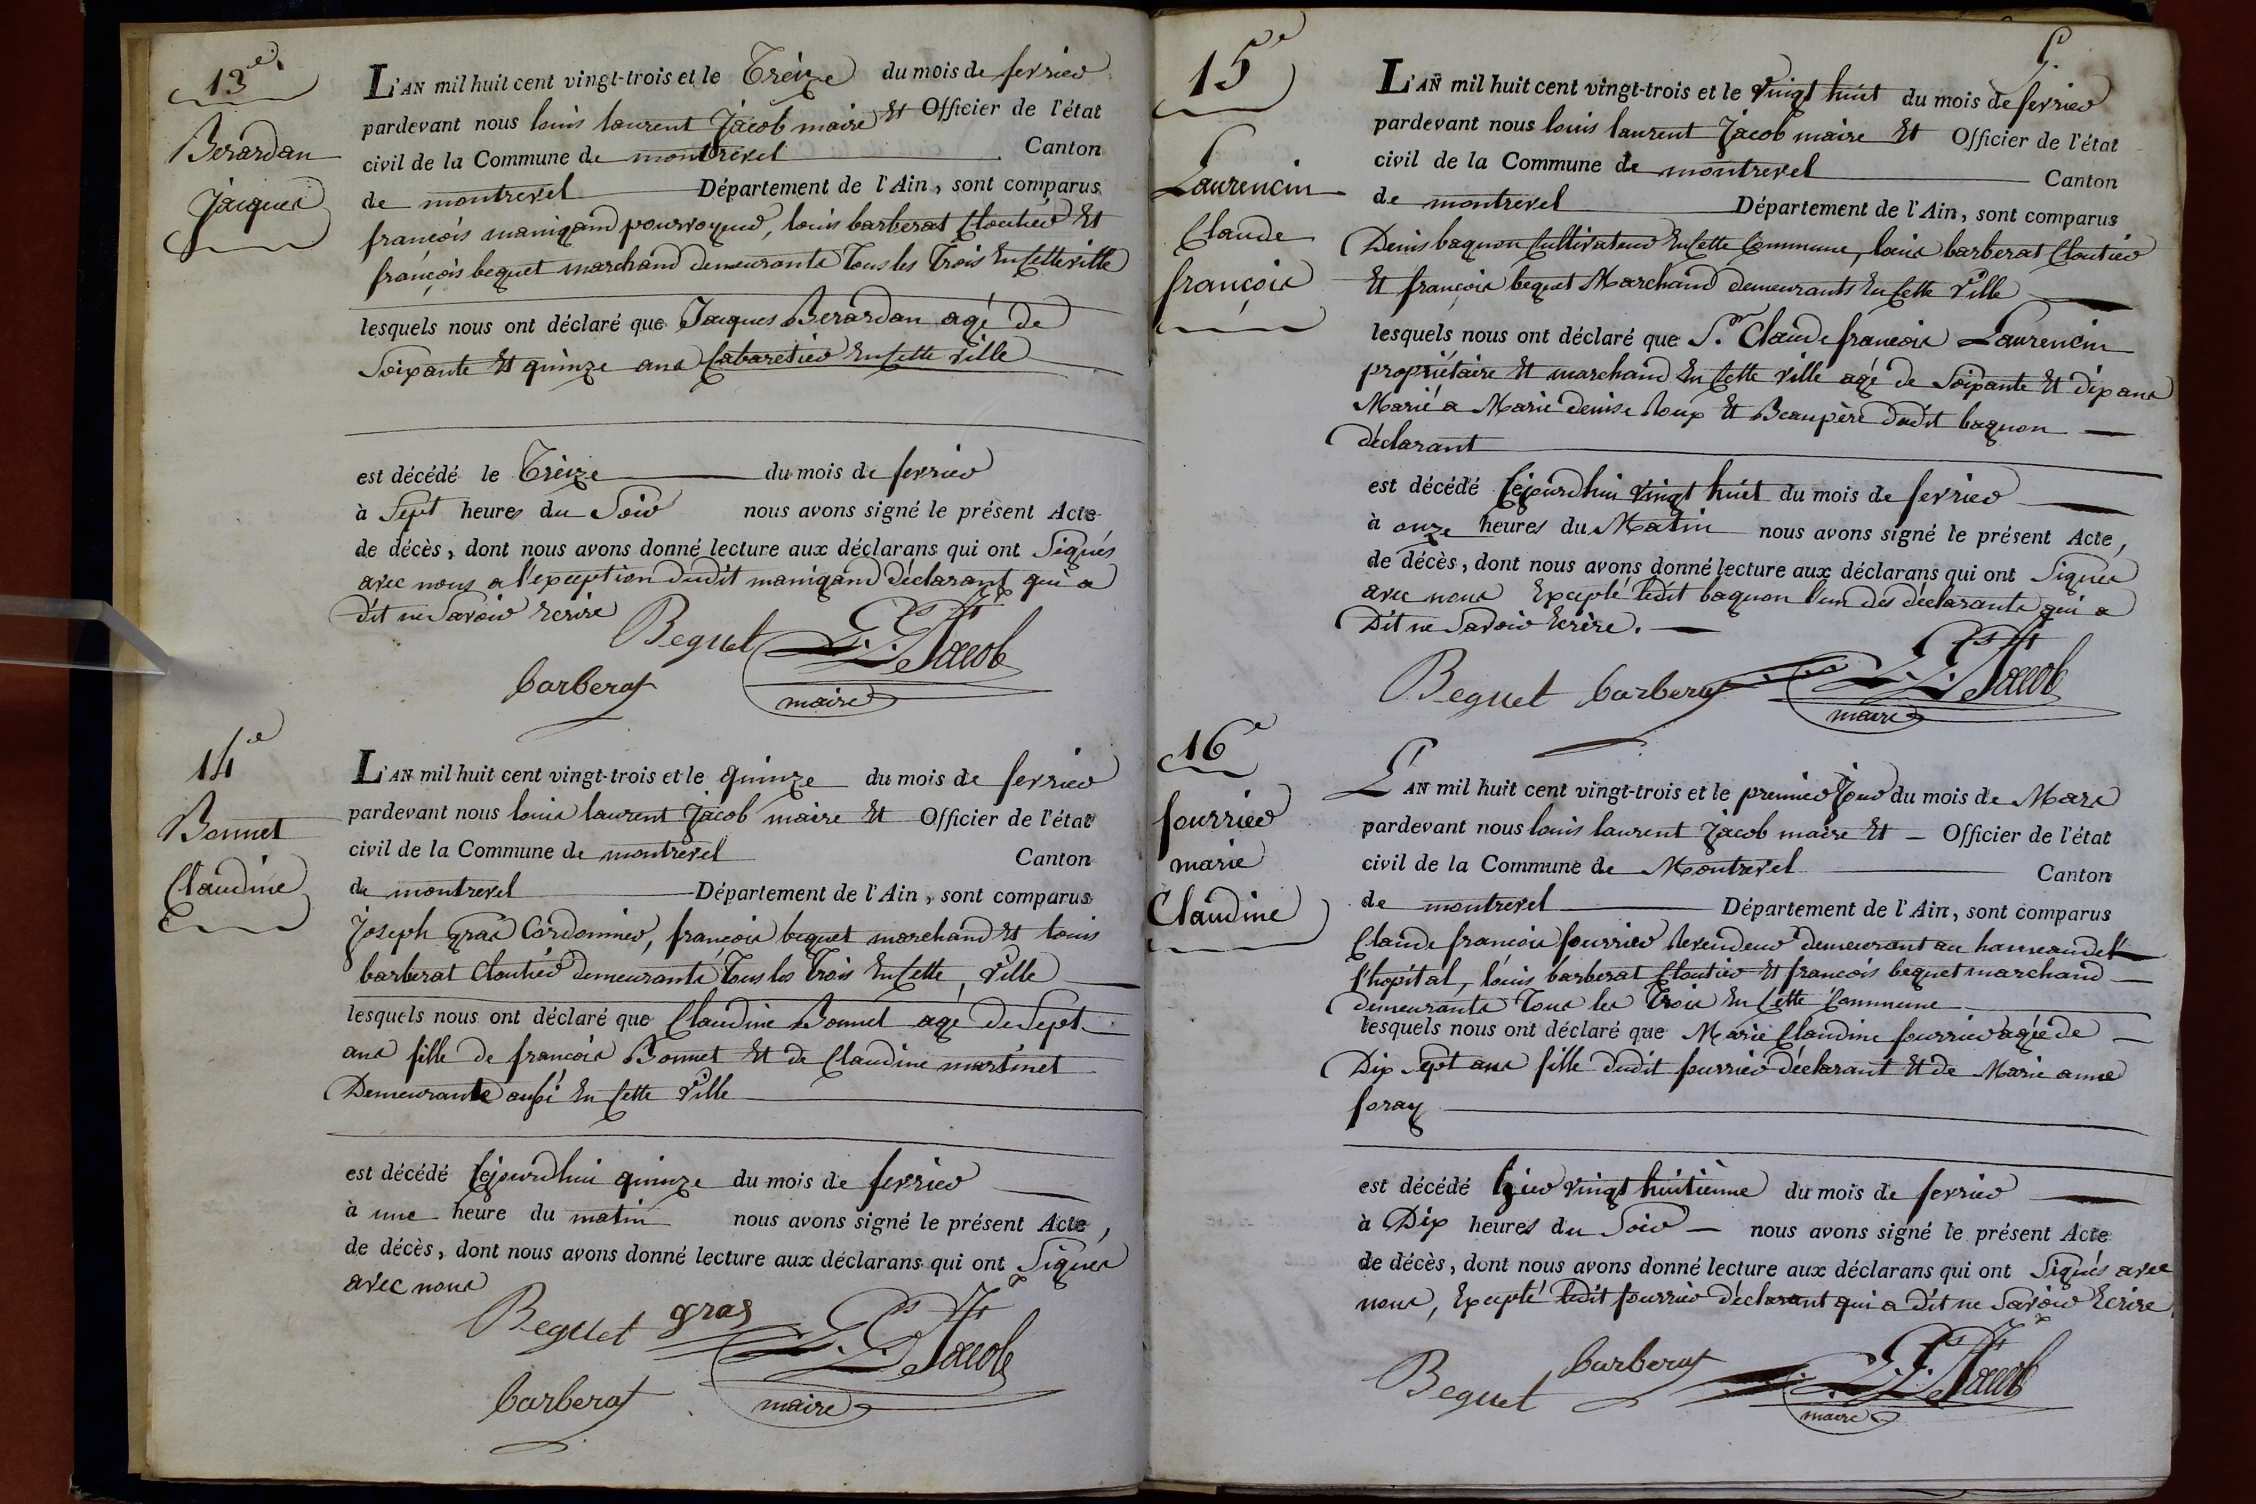 13e.
Berardan
Jacques
L'AN mil huit cent vingt-trois et le Treize du mois de fevrier
pardevant nous louis laurent Jacob maire Et Officier de l'état
civil de la Commune de montrevel Canton
de montrevel Département de l'Ain, sont comparus
françois manigand pourvoyeur, louis barberat Cloutier Et
françois bequet marchand demeurants Tous les Trois En Cette ville
lesquels nous ont déclaré que Jacques Berardan agé de
Soixante Et quinze ans Cabaretier En Cette ville
est décédé le Treize du mois de fevrier
à Sept heures du Soir nous avons signé le présent Acte
de décès, dont nous avons donné lecture aux déclarans qui ont Signés
avec nous a l'exception dudit manigand déclarant qui a
dit ne Savoir Ecrire
Bequet L. L. Jacob
barberat maire
14e
Bonnet
Claudine
L'AN mil huit cent vingt-trois et le quinze du mois de fevrier
pardevant nous louis laurent Jacob maire Et Officier de l'état
civil de la Commune de montrevel Canton
de montrevel Département de l'Ain, sont comparus
Joseph gras Cordonnier, françois bequet marchand Et louis
barberat Cloutier demeurants Tous les Trois En Cette Ville
lesquels nous ont déclaré que Claudine Bonnet agé de Sept
ans fille de françois Bonnet Et de Claudine martinet
Demeurante aussi En Cette Ville
est décédé Cejourdhui quinze du mois de fevrier
à une heure du matin nous avons signé le présent Acte,
de décès, dont nous avons donné lecture aux déclarans qui ont Signés
avec nous
Bequet gras L. L. Jacob
barberat maire
15e
Laurencin
Claude
françois
L'AN mil huit cent vingt-trois et le Vingt huit du mois de fevrier
pardevant nous louis laurent Jacob maire Et Officier de l'état
civil de la Commune de montrevel Canton
de montrevel Département de l'Ain, sont comparus
Denis baguon Cultivateur En Cette Commune, louis barberat Cloutier
Et françois bequet Marchand demeurants En Cette Ville
lesquels nous ont déclaré que Sr. Claude françois Laurencin
propriétaire Et marchand En Cette ville agé de Soixante Et dix ans
Marié a Marie denise loup Et Beaupère dudit baguon
déclarant
est décédé Cejourdhui vingt huit du mois de fevrier
à onze heures du Matin nous avons signé le présent Acte,
de décès, dont nous avons donné lecture aux déclarans qui ont Signés
avec nous Excepté ledit baguon l'un des déclarants qui a
Dit ne Savoir Ecrire.
Bequet barberat L. L. Jacob
maire
16e
fourrier
marie
Claudine
L'AN mil huit cent vingt-trois et le premier Jour du mois de Mars
pardevant nous louis laurent Jacob maire Et Officier de l'état
civil de la Commune de Montrevel Canton
de montrevel Département de l'Ain, sont comparus
Claude françois fourrier Revendeur demeurant au hameau del
l'hopital, louis barberat Cloutier Et françois bequet marchand
demeurants Tous les Trois En Cette Commune
lesquels nous ont déclaré que Marie Claudine fourrier agée de
Dix Sept ans fille dudit fourrier déclarant Et de Marie anne
foray
est décédé hier vingt huitième du mois de fevrier
à Dix heures du Soir nous avons signé le présent Acte
de décès, dont nous avons donné lecture aux déclarans qui ont Signés avec
nous, Excepté ledit fourrier déclarant qui a Dit ne Savoir Ecrire
Bequet barberat L. L. Jacob
maire